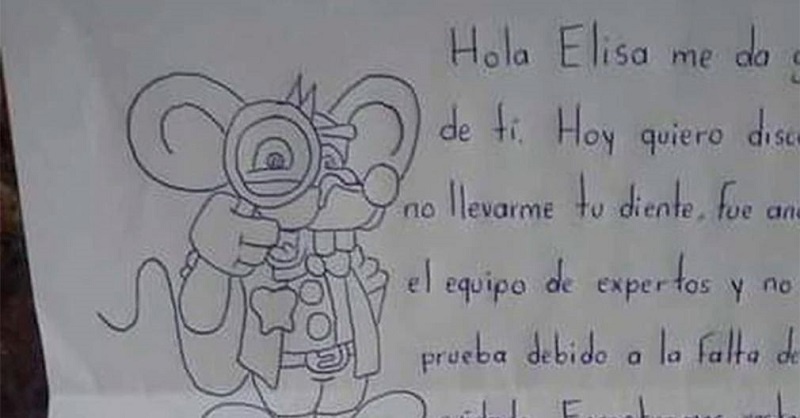 Hola Elisa me da
de ti. Hoy quiero
no llevarme tu diente, fue
el equipo de expertos y no
prueba debido a la falta de